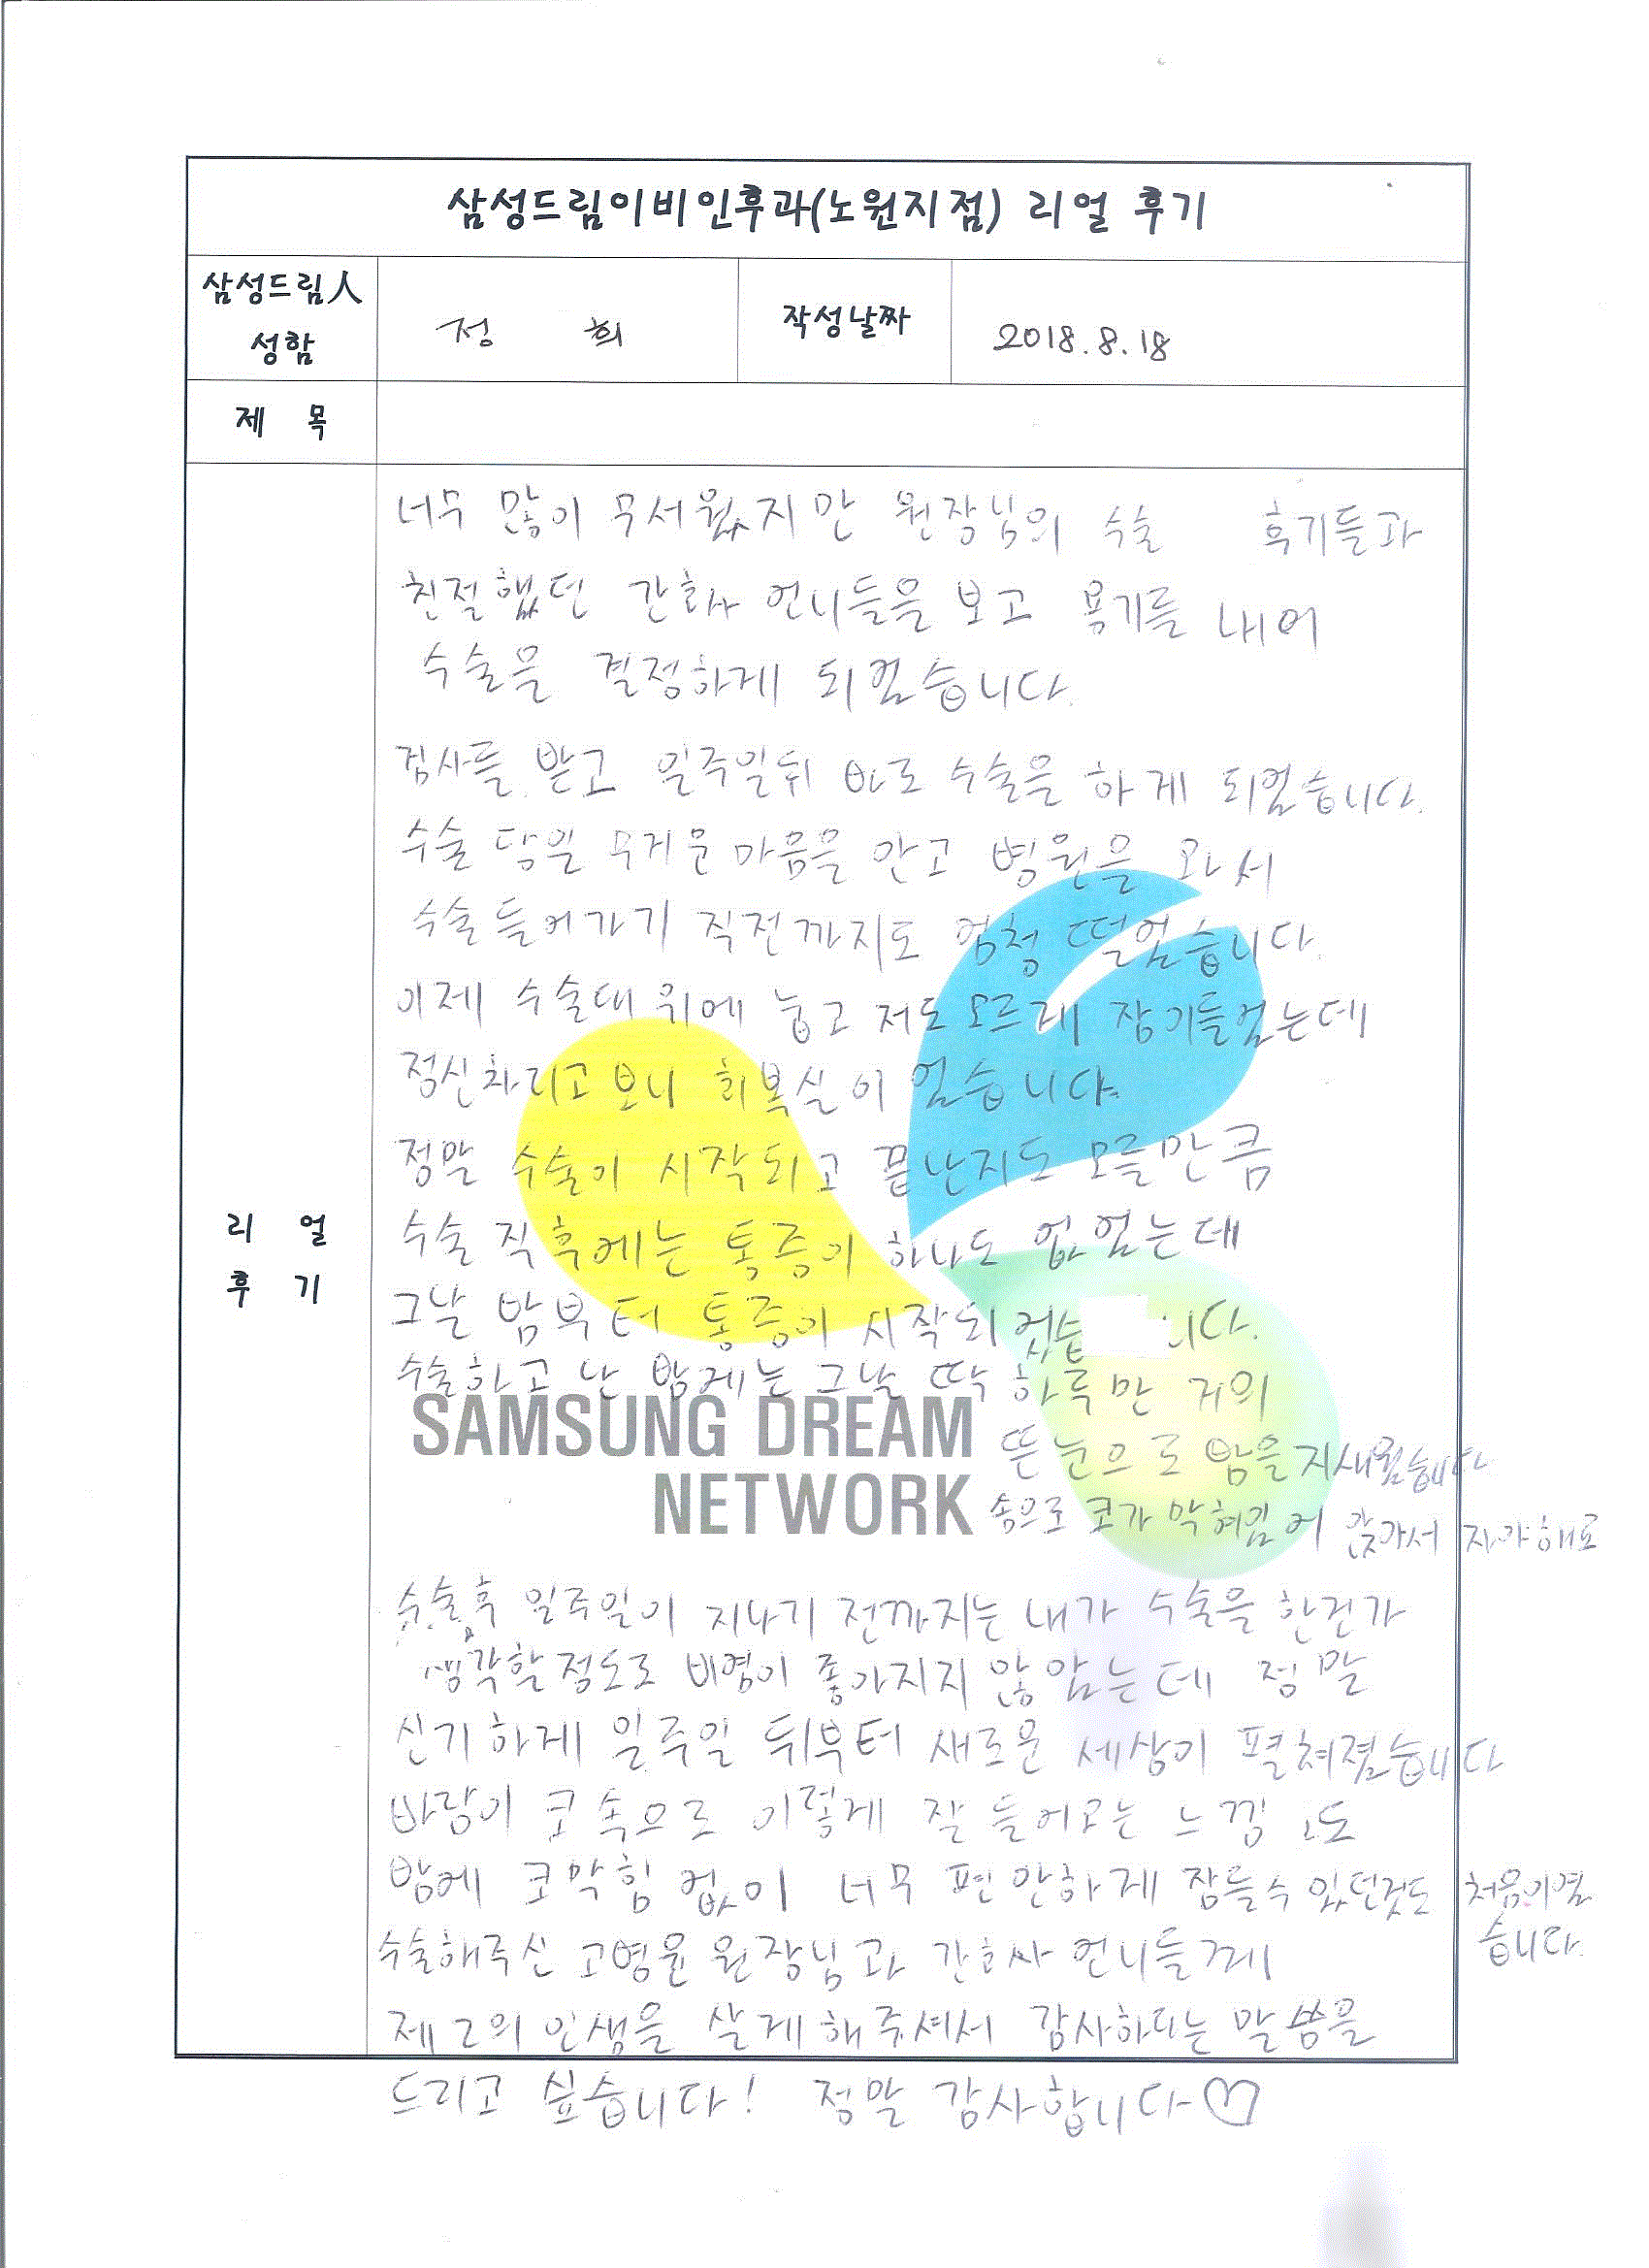 삼성드림이비인후과(노원지점) 리얼 후기
삼성드림人
성함
정 희
작성날짜
2018.8.18
제 목
리 얼
후 기
너무 많이 무서웠지만 원장님의 수술 후기들과
친절했던 간호사 언니들을 보고 용기를 내어
수술을 결정하게 되었습니다.
검사를 받고 일주일뒤 바로 수술을 하게 되었습니다.
수술 당일 무거운 마음을 안고 병원을 와서
수술 들어가기 직전까지도 엄청 떨었습니다.
이제 수술대 위에 눕고 저도 모르게 잠이들었는데
정신차리고보니 회복실이었습니다.
정말 수술이 시작되고 끝난지도 모를만큼
수술 직후에는 통증이 하나도 없었는데
그날 밤부터 통증이 시작되었습 니다.
수술하고 난 밤에는 그날 딱 하루만 거의
뜬눈으로 밤을지새웠습니다
솜으로 코가 막혀있어 앉아서 자야해로
SAMSUNG DREAM
NETWORK
수술후 일주일이 지나기 전까지는 내가 수술을 한건가
생각할정도로 비염이 좋아지지 않았는데 정말
신기하게 일주일 뒤부터 새로운 세상이 펼쳐졌습니다
바람이 코 속으로 이렇게 잘 들어오는 느낌 도
밤에 코막힘 없이 너무 편안하게 잠들수있던것도 처음이였
습니다.
수술해주신 고영윤 원장님과 간호사 언니들께
제2의 인생을 살게 해주셔서 감사하다는 말씀을
드리고 싶습니다! 정말 감사합니다♡